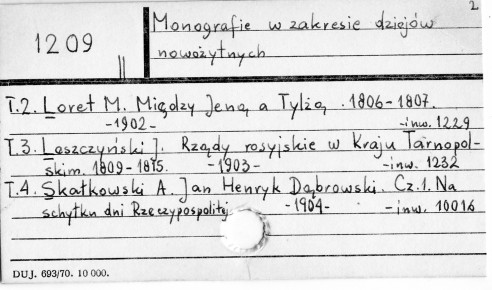 2
Monografie w zakresie dziejów
1209
nowożytnych
T.2. Loret M. Między Jeną a Tylżą. 1806-1807.
-1902- -inw. 1229
T.3. Leszczyński J. Rządy rosyjskie w Kraju Tarnopol-
skim. 1809-1815. -1903- -inw. 1232
T.4. Skałkowski A. Jan Henryk Dąbrowski. Cz.1. Na
schyłku dni Rzeczypospolitej -1904- -inw. 10016
DUJ. 693/70. 10 000.